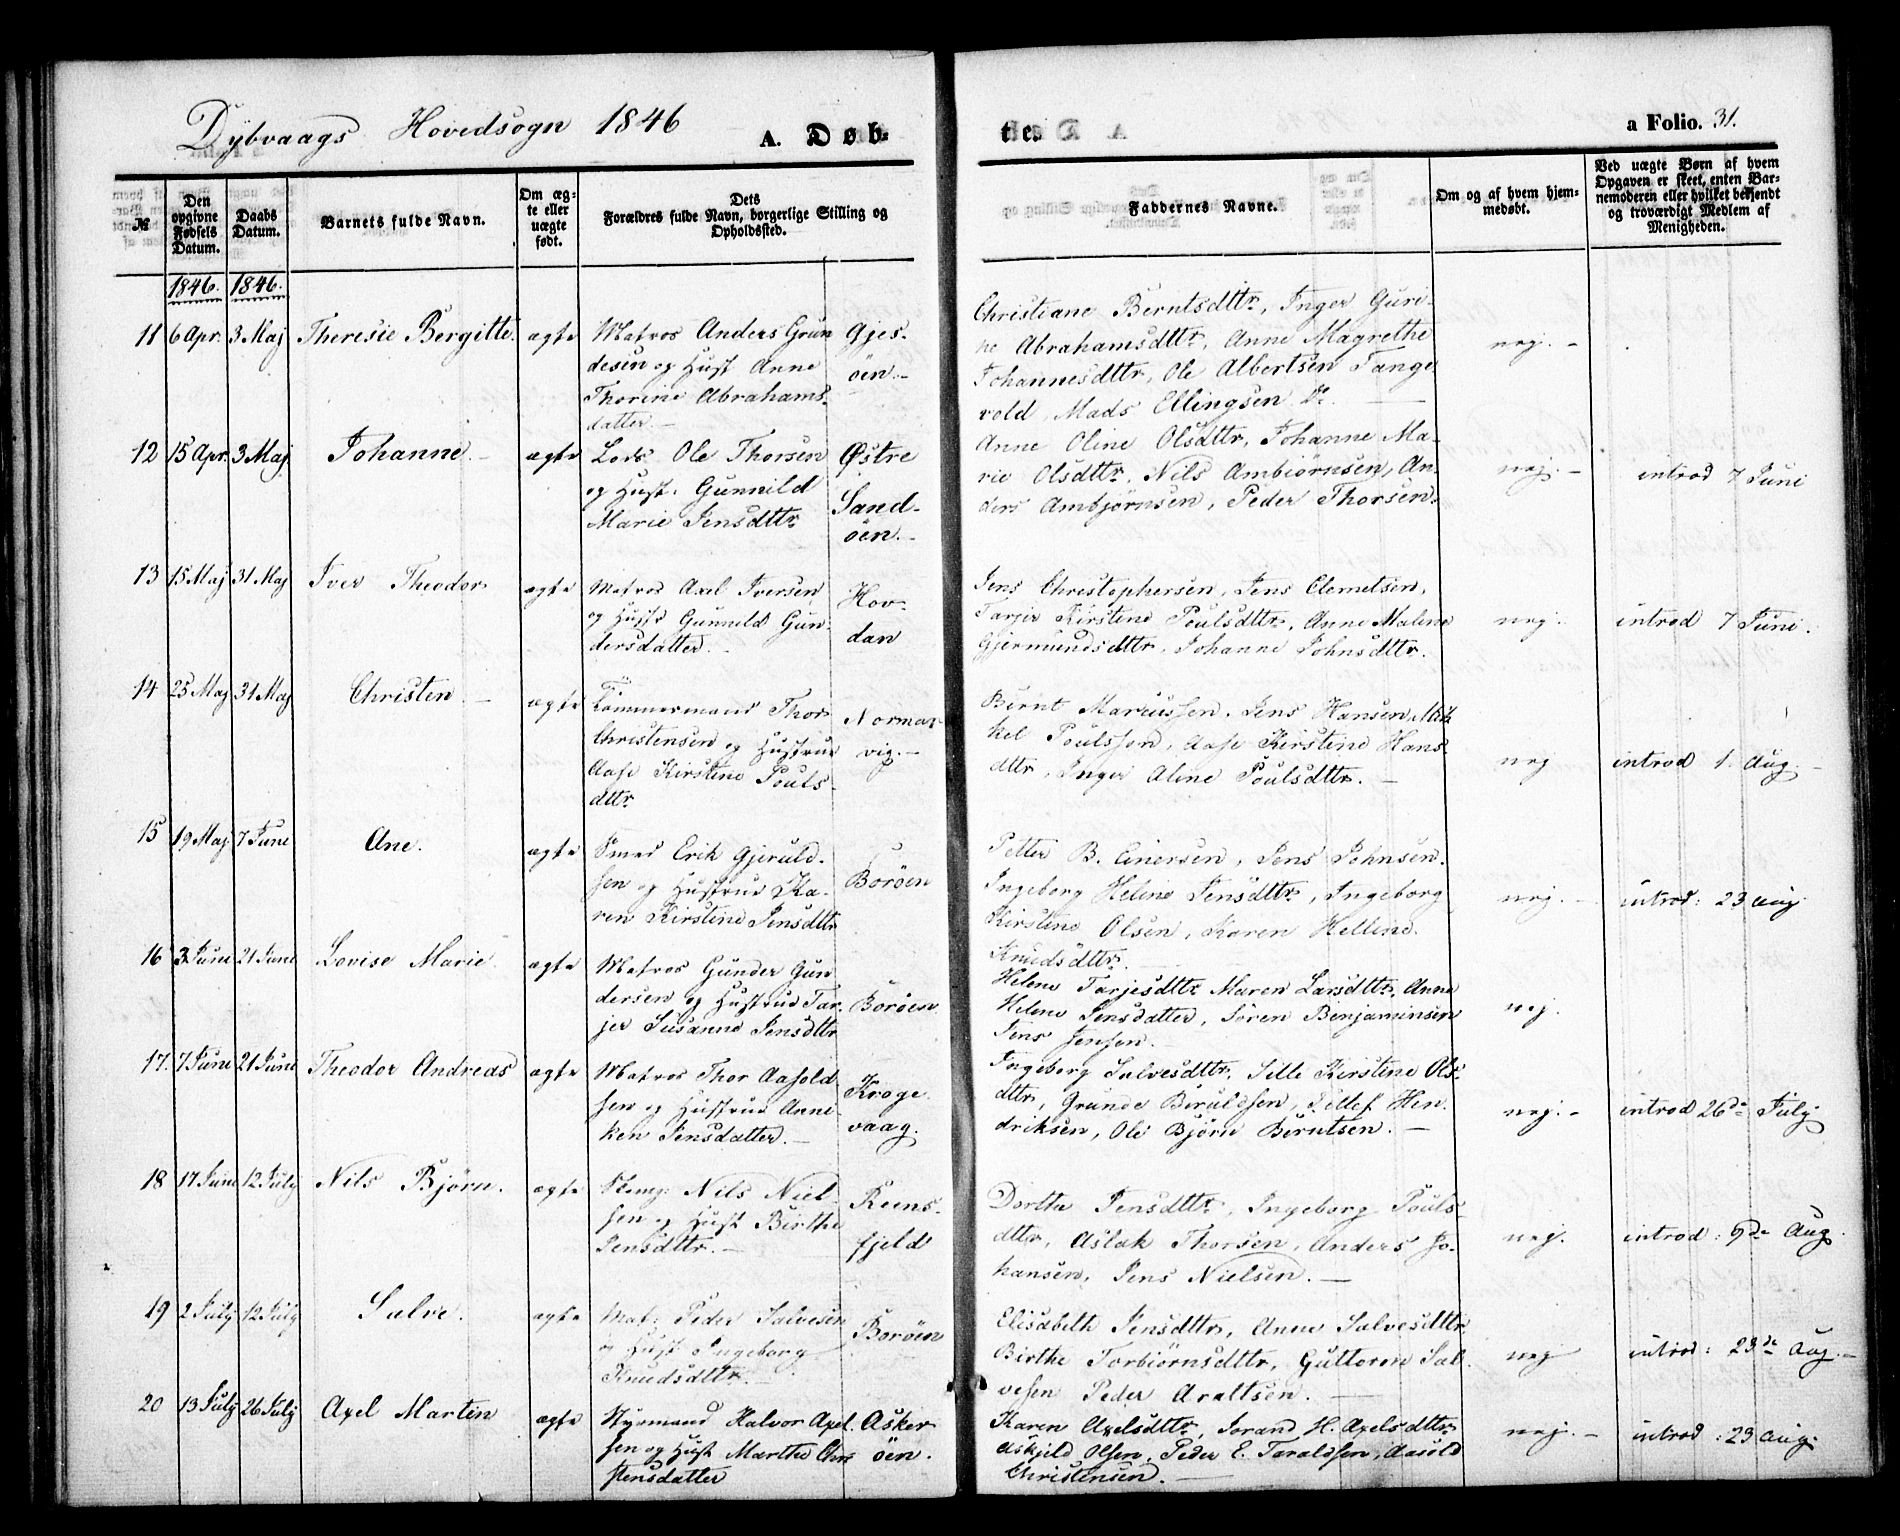 Dybvaags Hovedsogn 1846
A. Døb-
te.
a Folio. 31.
№
Den opgivne Fødsels Datum.
Daabs Datum.
Barnets fulde Navn.
Om æg-te eller uægte født.
Dets Forældres fulde Navn, borgerlige Stilling og Opholdssted.
Faddernes Navne.
Om og af hvem hjem-medøbt.
Ved uægte Børn af hvem Opgaven er skeet, enten Bar-nemoderen eller hvilket bekjendt og troværdigt Medlem af Menigheden.
1846. 1846.
11 6 Apr. 3 Maj Theresie Bergitte. ægte
Matros Anders Grun
desen og Hust Anne
Thorine Abrahams-
datter.
Gjes-
öen.
Christiane Berntsdttr, Inger Guri-
ne Abrahamsdttr, Anne Magrethe
Johannesdttr, Ole Albertsen Tange
vold, Mads Ellingsen Do.
nej.
12 15 Apr. 3 Maj Johanne. ægte
Lods Ole Thorsen
og Hust. Gunnild
Marie Jensdttr
Østre
Sand-
öen.
Anne Oline Olsdttr, Johanne Ma-
rie Olsdttr, Nils Ambiörnsen, An-
ders Ambjörnsen, Peder Thorsen.
nej.
introd 7 Juni
13 15 Maj 31 Maj Iver Theodor ægte
Matros Axel Iversen
og Hust Gunnild Gun-
dersdatter.
Hov-
dan
Jens Christophersen, Jens Clemetsen,
Tarjer Kirstine Poulsdttr, Anne Malene
Gjermundsdttr, Johanne Johnsdttr.
nej.
introd 7 Juni.
14 25 Maj 31 Maj Christen ægte
Tömmermand Thor
Christensen og Hustrue
Aase Kirstine Pouls-
dttr
Normar
vig.
Bernt Marcussen, Jens Hansen, Mik
kel Poulssen, Aase Kirstine Hans
dttr, Inger Aline Poulsdttr.
nej
introd 1. Aug.
15 19 Maj 7 Juni Ane. ægte
Smed Erik Gjeruld-
sen og Hustrue Ka-
ren Kirstine Jensdttr
Boröen
Petter B. Einersen, Jens Johnsen.
Ingeborg Helene Jensdttr, Ingeborg
Kirstine Olsen, Karen Helline
Knudsdttr.
nej.
introd: 23 Aug.
16 3 Juni 21 Juni Lovise Marie ægte
Matros Gunder Gun
dersen og Hustrue Tar-
jer Susanne Jensdttr
Boröen
Helene Tarjesdttr Maren Larsdttr, Anne
Helene Jensdatter, Sören Benjaminsen
Jens Jensen.
nej.
17. 7 Juni 21 Juni Theodor Andreas ægte
Matros Thor Aasold
sen og Hustrue Anni-
ken Jensdatter.
Kroge-
vaag.
Ingeborg Salvesdttr, Sille Kirstine Ols-
dttr, Grunde Beruldsen, Detlef Hen-
driksen, Ole Björn Berntsen.
nej.
introd 26de July
18 17 Juni 12 July Nils Björn. ægte
Nils Niel-
sen og Hust Birthe
Jensdttr.
Reens-
fjeld
Dorthe Jensdttr, Ingeborg Pouls-
dttr, Aslak Thorsen, Anders Jo-
hansen, Jens Nielsen.
nej.
introd: 9de Aug.
19 2 July 12 July Salve. ægte
Mat: Peder Salvesen
og Hust Ingeborg
Knudsdttr.
Boröen
Elisabeth Jensdttr, Anne Salvesdttr
Birthe Torbiörnsdttr, Guttorm Sal
vesen Peder Araltsen.
nej
introd: 23de Aug.
20 13 July 26 July Axel Martin ægte
Styrmand Halvor Axel
sen og Hust Marthe Chri
stensdatter
Asker
öen.
Karen Axelsdttr, Jorand H. Axelsdttr
Askjeld Olsen, Peder E. Taraldsen, Aasold
Christensen.
nej.
introd: 23 Aug.